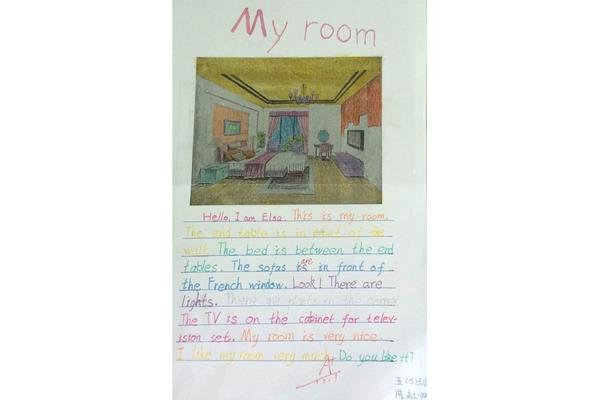 My room
Hello, I am Elsa. This is my room.
The end table is in of
wall. The bed is between the end
tables. The sofas is are in front of
the French window. Look! There are
lights. There are plants in the corner
The TV is on the cabinet for telev-
ision set. My room is very nice.
I like my room very much. Do you like it?
A+